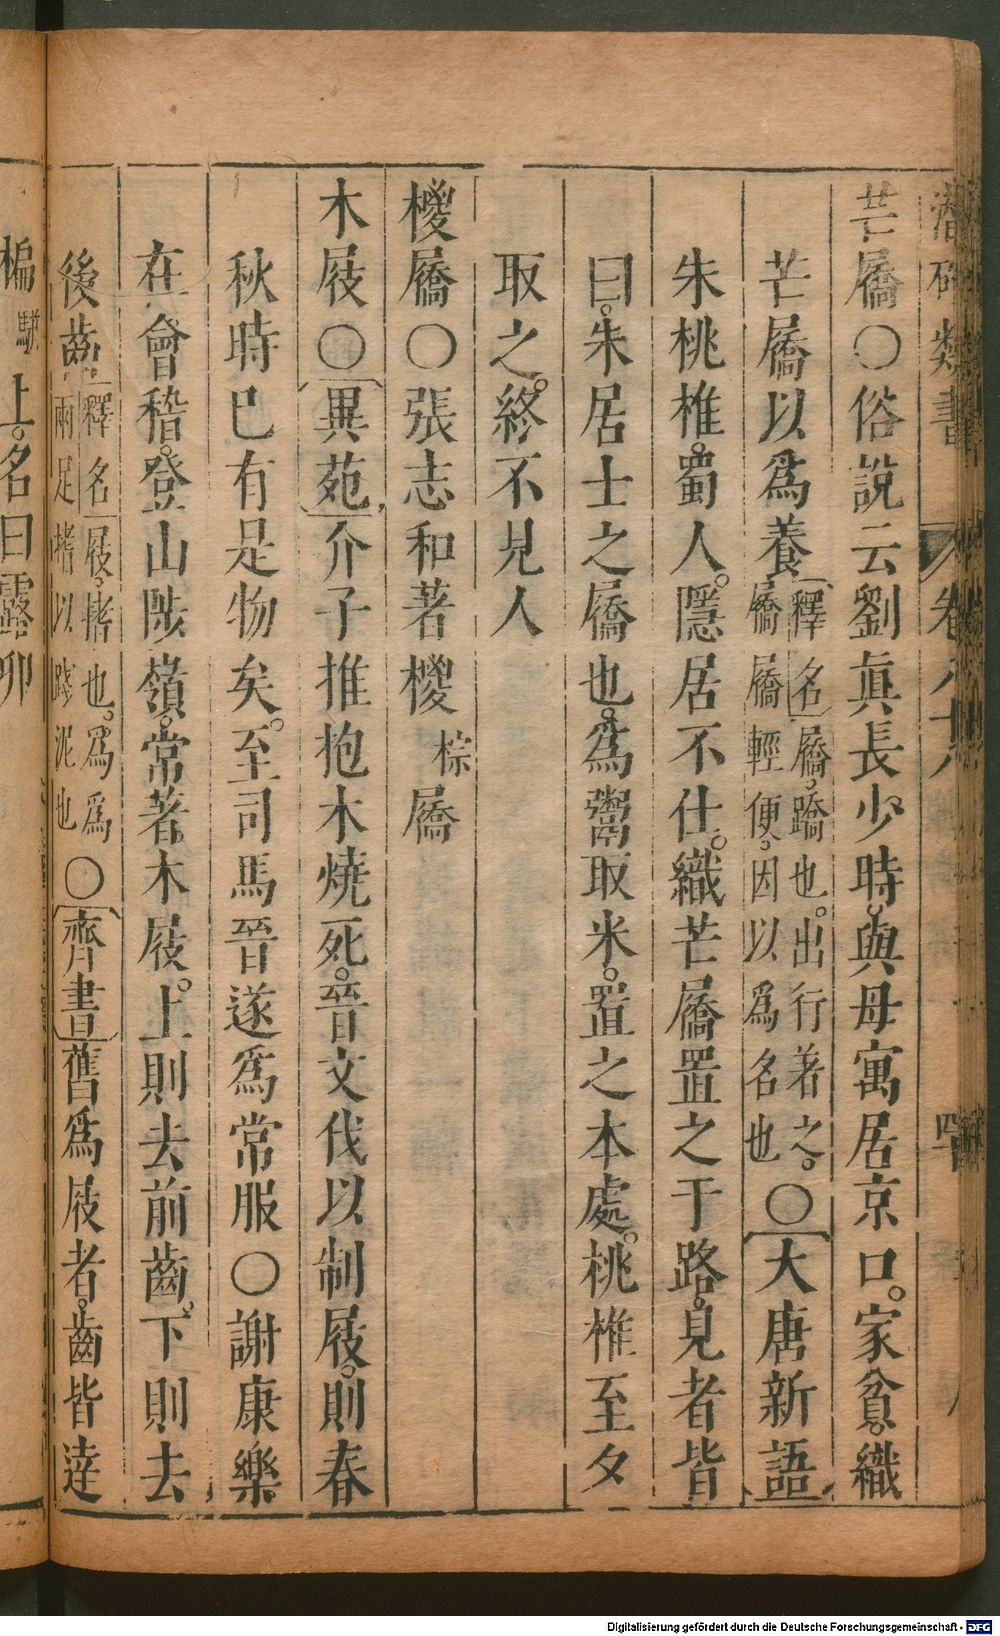 潛確類書 卷八十八 四 八
芒屩○俗說云劉眞長少時與母寓居京口。家貧。織
芒屩以爲養釋名屩。蹻也。出行著之。屩屩輕便。因以爲名也○大唐新語
朱桃椎。蜀人。隱居不仕。織芒屩置之于路。見者皆
曰。朱居士之屩也。爲鬻取米。置之本處。桃椎至夕
取之。終不見人
椶屩○張志和著椶棕屩
木屐○異苑介子推抱木燒死。晉文伐以制屐。則春
秋時已有是物矣。至司馬晉遂爲常服○謝康樂
在會稽。登山陟嶺。常著木屐。上則去前齒。下則去
後齒釋名屐。揩也。爲爲兩足揩以踐泥也○齊書舊爲屐者。齒皆達
楄 上。名曰露卯
Digitalisierung gefördert durch die Deutsche Forschungsgemeinschaft - DFG